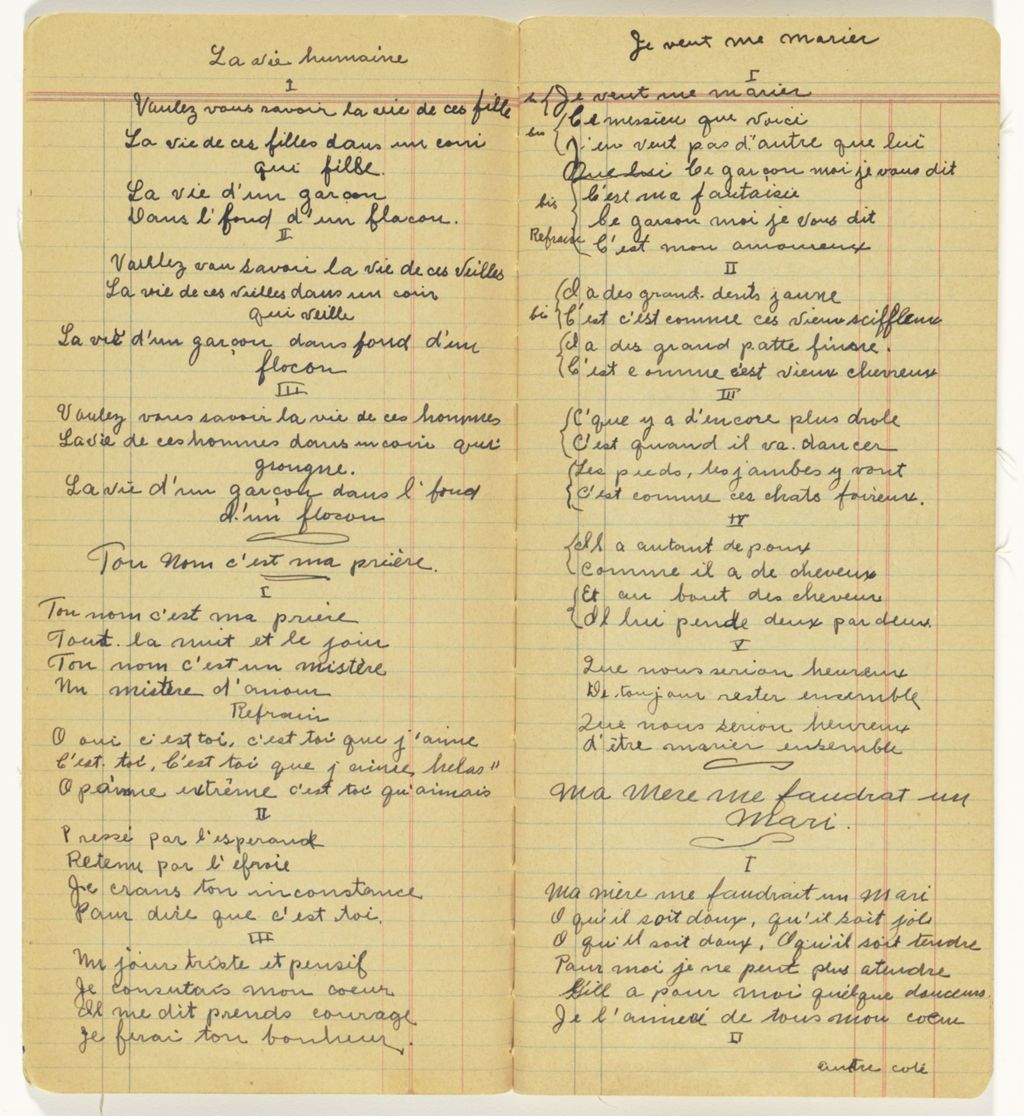 La vie humaine
I
Voulez vous savoir la vie de ces fille
La vie de ces filles dans un coin
qui fille.
La vie d'un garçon
Dans l'fond d'un flacon.
II
Voullez vou savoir la vie de ces Veilles
La vie de ces vieilles dans un coin
qui veille
La vie d'un garçon dans fond d'un
flocon
III
Voulez vous savoir la vie de ces hommes
La vie de ces hommes dans un coin qui
grongne.
La vie d'un garçon dans l'fond
d'un flocon
Ton Nom c'est ma prière.
I
Ton nom c'est ma prière
Tout la nuit et le jour
Ton nom c'est un mistère
Un mistère d'amour
Refrain
O oui c'est toi, c'est toi que j'aime
C'est toi, C'est toi que j'aime, helas"
O extrême c'est toi qu'aimais
II
Pressé par l'esperand
Retenu par l'efroie
Je crans ton inconstance
Pour dire que c'est toi.
III
Un jour triste et pensif
Je consutais mon coeur
Il me dit prends courage
Je ferai ton bonheur.
Je veut me marier
I
bis Je veut me marier
bis Ce messieu que voici
J'en veut pas d'autre que lui
Ce garçon moi je vous dit
bis C'est ma fantaisie
Ce garson moi je vous dit
Refrain C'est mon amoureux
II
Il a des grand. dents jaune
bis C'est c'est comme ces vieux sciffleux
Il a des grand patte finne.
C'est comme c'est vieux chevreux
III
C'que y a d'encore plus drole
C'est quand il va. dancer
Les pieds, les jambes y vont
C'est comme ces chats foireux.
IV
Il a autant de poux
Comme il a de cheveux
Et au bout des cheveux
Il lui pende deux par deux
V
Que nous serion heureux
De toujour rester ensemble
Que nous serion heureux
d'être marier ensemble
Ma Mere me faudrat un
Mari.
I
Ma mère me faudrait un Mari
O qu'il soit doux, qu'il soit joli
O qu'il soit doux, O qu'il soit tendre
Pour moi je ne peut plus atendre
Sill a pour moi quelque douceurs
Je l'aimerai de tous mon coeur
II
autre coté